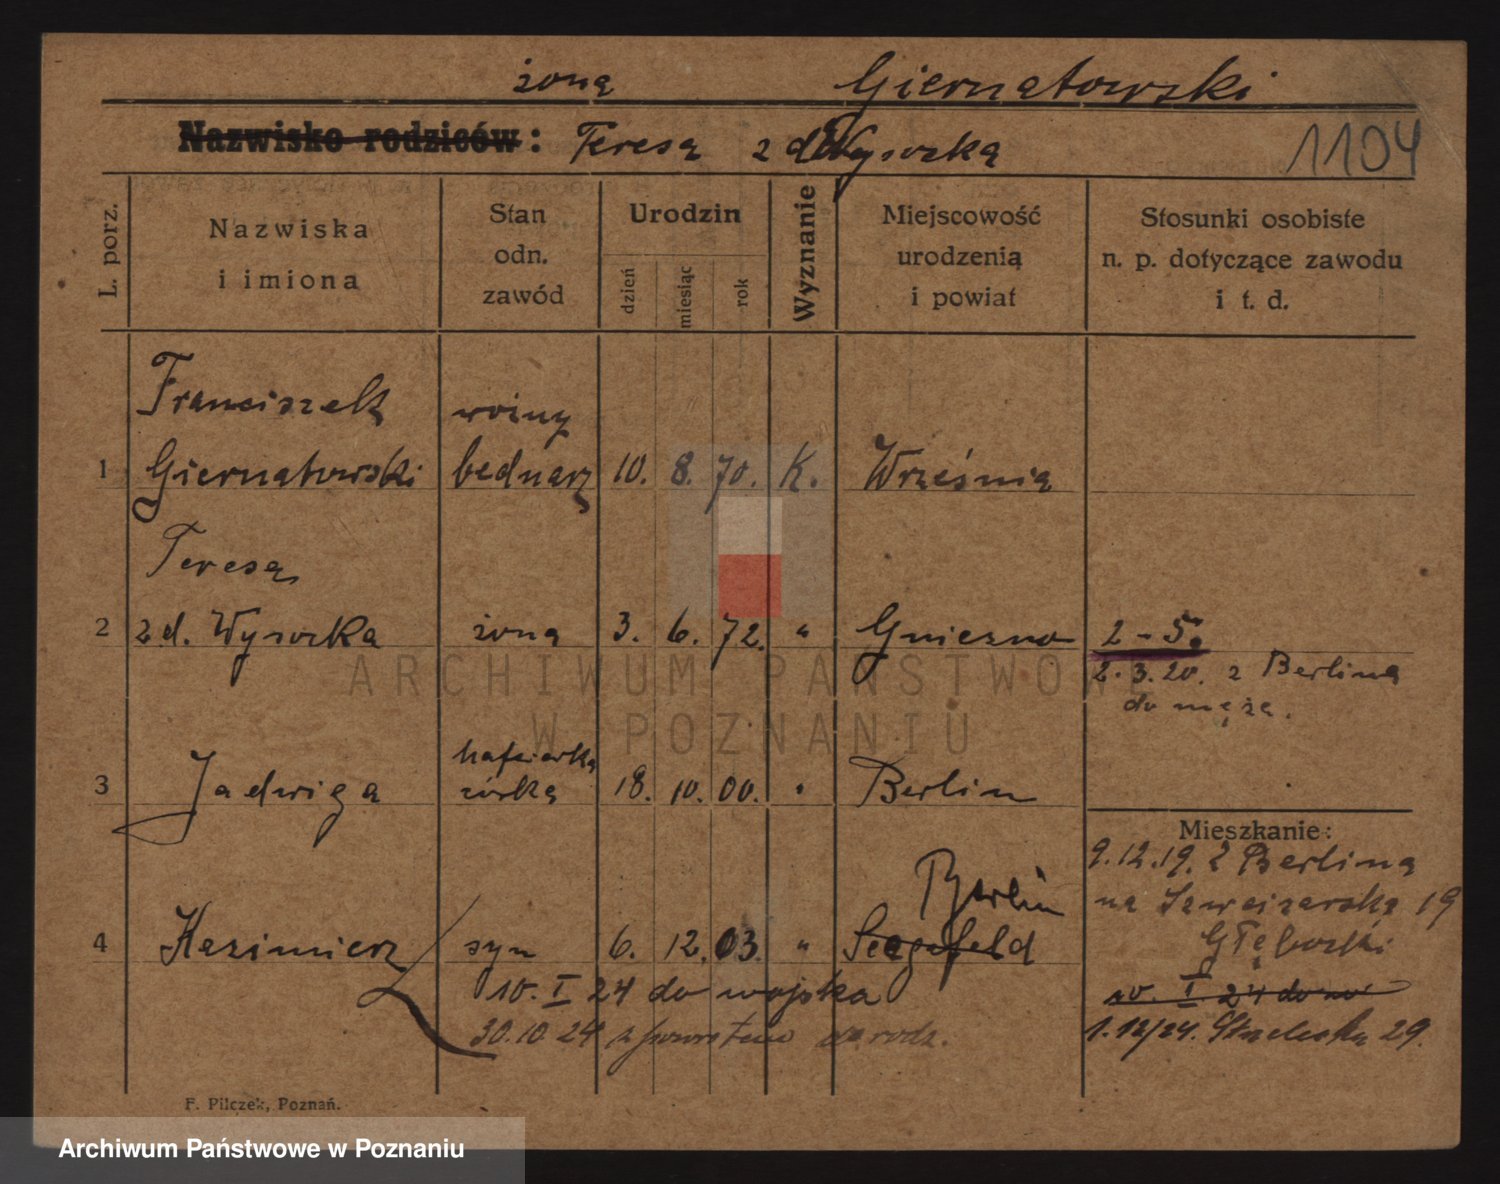 żona Giernatowski
Nazwisko rodziców: Teresa z d. Wysocka 1104
L. porz.
Nazwiska
i imiona
Stan
odn.
zawód
Urodzin
dzień
miesiąc
rok
Wyznanie
Miejscowość
urodzenia
i powiat
Stosunki osobiste
n. p. dotyczące zawodu
i t. d.
Franciszek woźny
1 Giernatowski bednarz 10. 8. 70. K. Września
Teresa
2 z d. Wysocka żona 3. 6. 72. " Gniezno 2 - 5.
2.3.20. z Berlina
do męża.
hafciarka
3 Jadwiga córka 18. 10. 00. " Berlin
Mieszkanie:
9.12.19. z Berlina
na Szwajcarska 19
Głębocki
Berlin
4 Kazimierz syn 6. 12. 03. " Seegefeld
10. I 24 do wojska
10. I 24 do wo
30.10.24 z powrotem do rodz.
1.12/24. Strzelecka 29.
F. Pilczek, Poznań.
ARCHIWUM PAŃSTWOWE
W POZNANIU
Archiwum Państwowe w Poznaniu